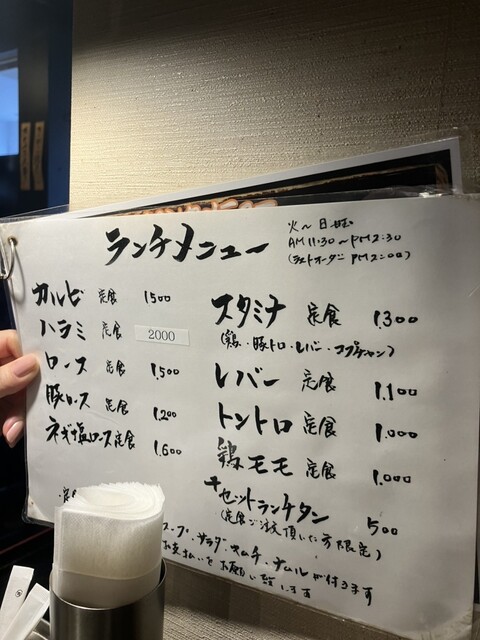 ランチメニュー
火〜日
AM 11:30〜PM 2:30
(ラストオーダー PM 2:00)
カルビ 定食 1500
ハラミ 定食 2000
ロース 定食 1,500
豚ロース 定食 1,200
ネギ塩ロース定食 1,600
スタミナ 定食 1,300
(鶏・豚トロ・レバー・コプチャン)
レバー 定食 1,100
トントロ 定食 1,000
鶏モモ 定食 1,000
+セットランチタン 500
(定食ご注文頂いた方限定)
定食
スープ・サラダ・キムチ・ナムルが付きます
お支払いをお願い致します